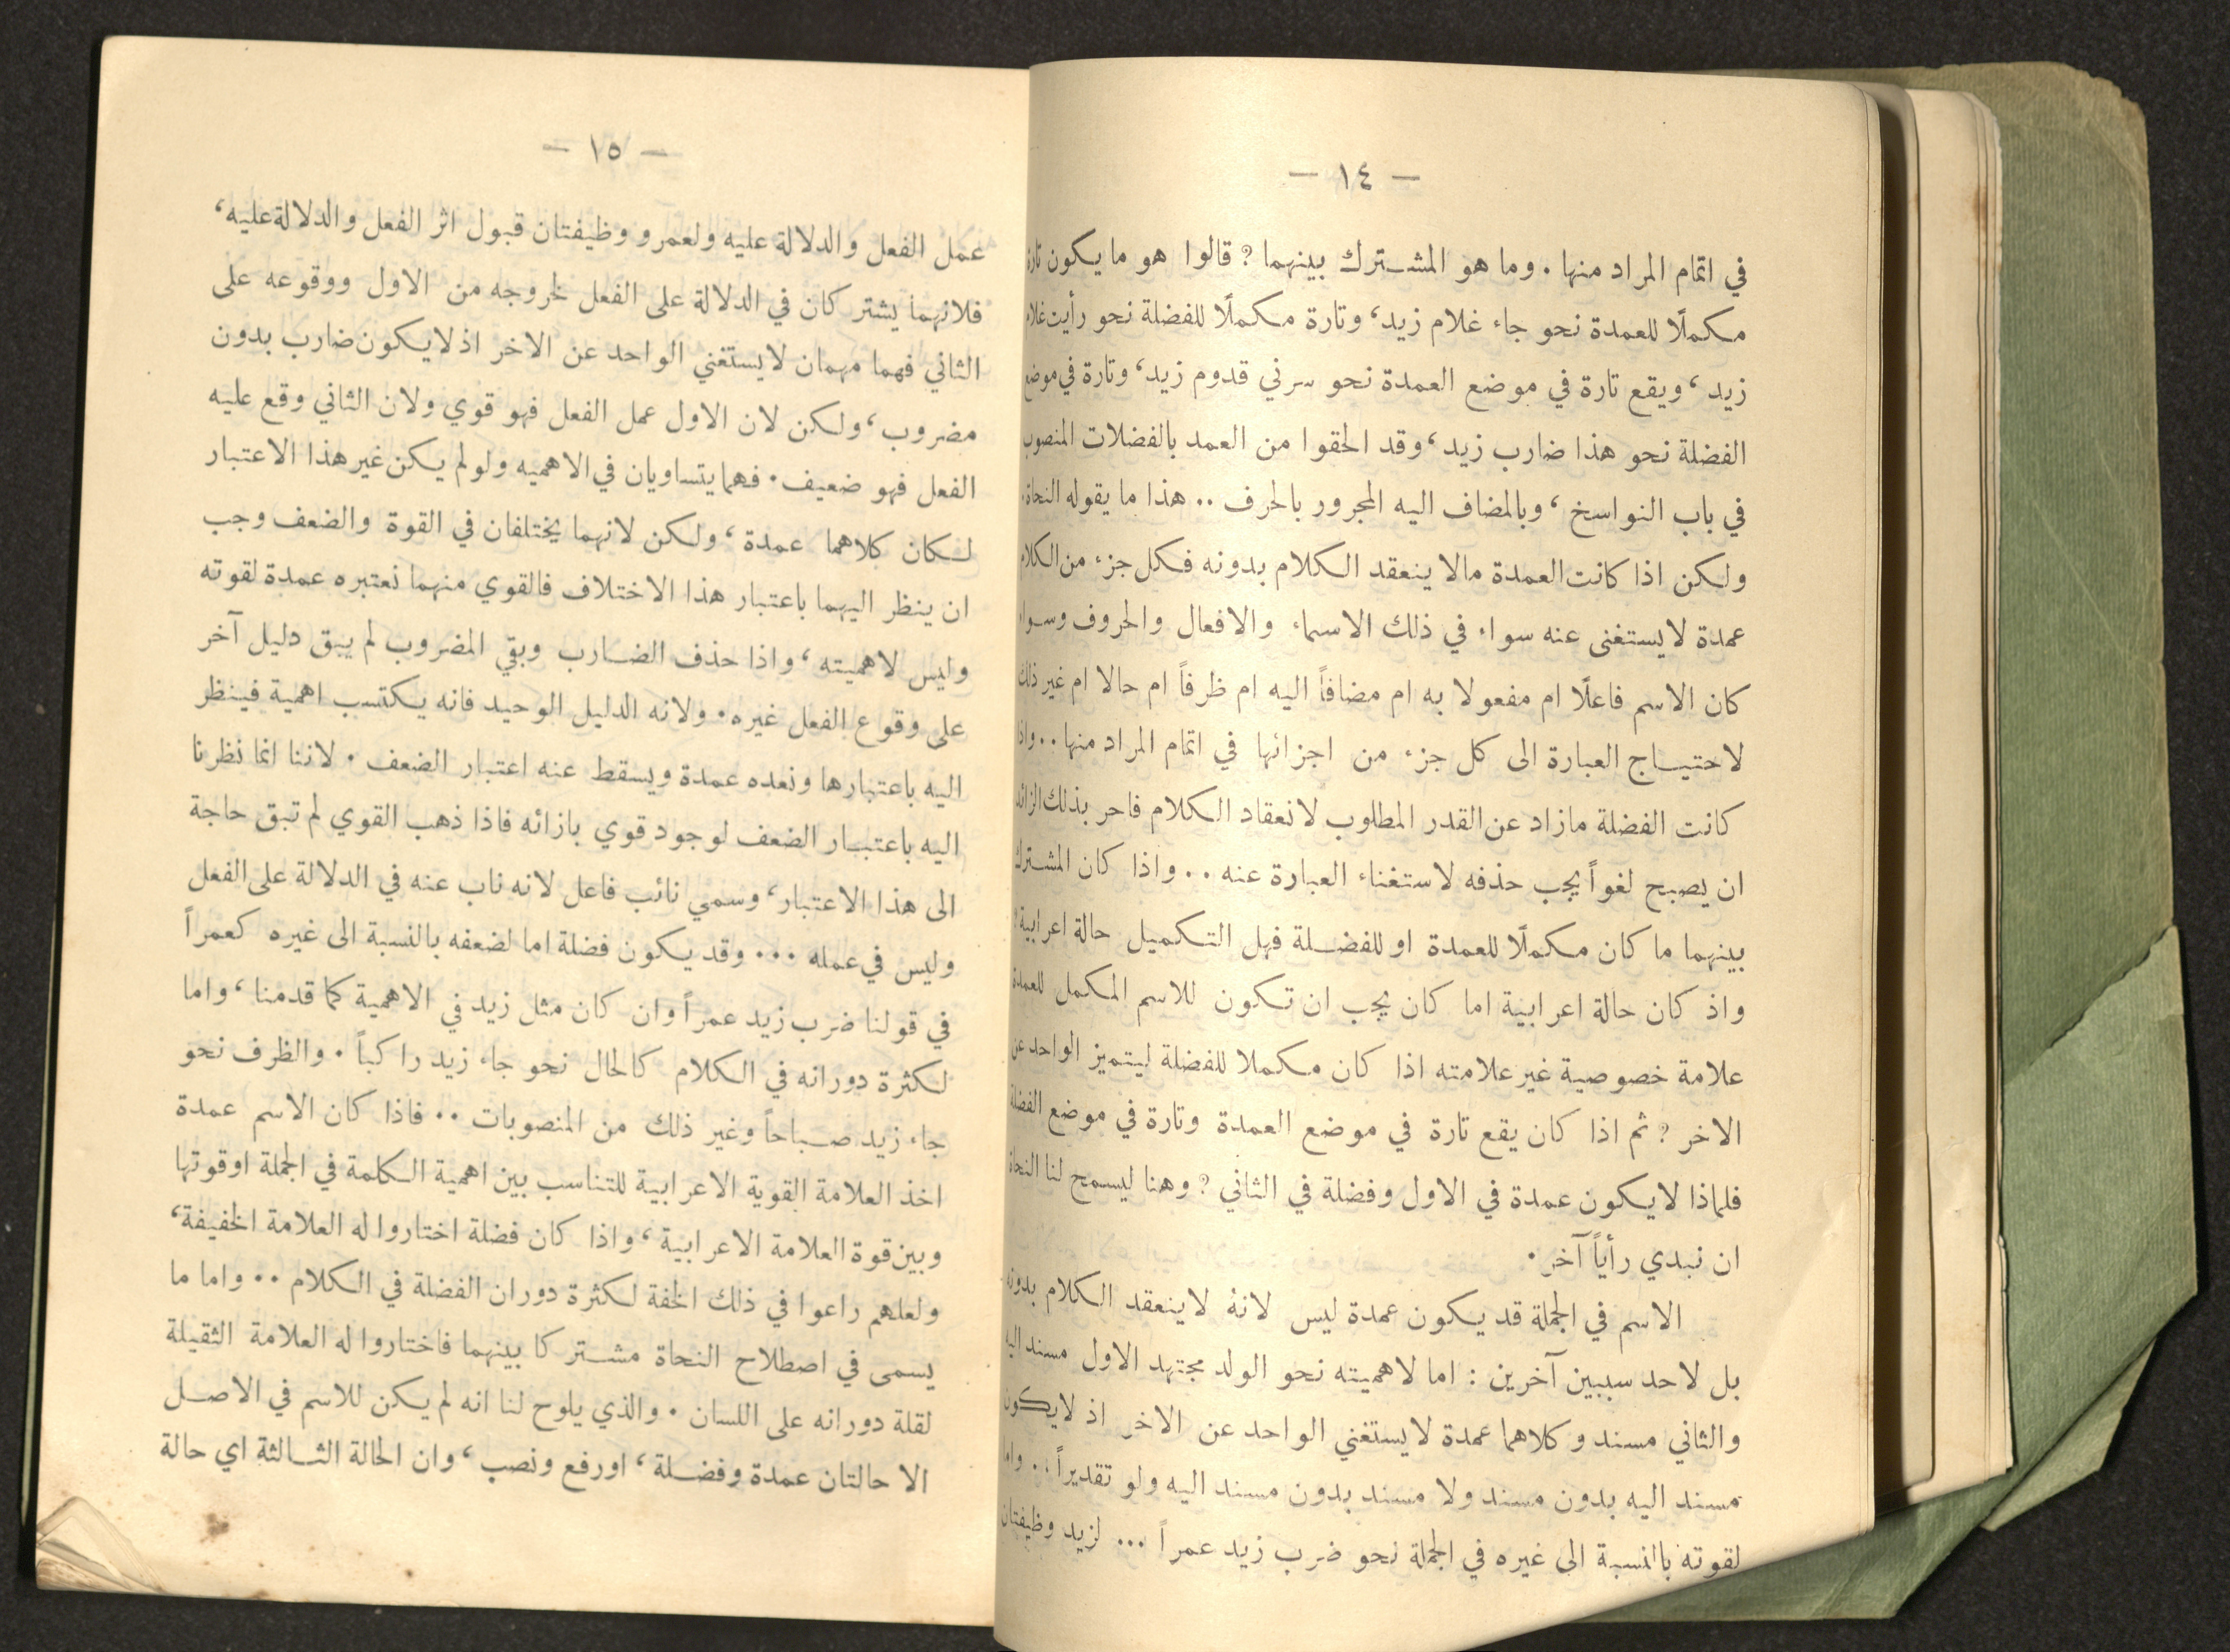 — ١٤ —
في اتمام المراد منها . وما هو المشترك بينهما ؟ قالوا هو ما يكون تارة
مكملًا للعمدة نحو جاء غلام زيد، وتارة مكملًا للفضلة نحو رأيت غلام
زيد، ويقع تارة في موضع العمدة نحو سرني قدوم زيد، وتارة في موضع
الفضلة نحو هذا ضارب زيد، وقد الحقوا من العمد بالفضلات المنصوب
في باب النواسخ، وبالمضاف اليه المجرور بالحرف .. هذا ما يقوله النحاة،
ولكن اذا كانت العمدة مالا ينعقد الكلام بدونه فكل جزء من الكلام
عمدة لا يستغنى عنه سواء في ذلك الاسماء والافعال والحروف وسواء
كان الاسم فاعلًا ام مفعولا به ام مضافاً اليه ام ظرفاً ام حالا ام غير ذلك
لاحتياج العبارة الى كل جزء من اجزائها في اتمام المراد منها .. واذا
كانت الفضلة مازاد عن القدر المطلوب لانعقاد الكلام فاحر بذلك الزائد
ان يصبح لغواً يجب حذفه لاستغناء العبارة عنه .. واذا كان المشترك
بينهما ما كان مكملًا للعمدة او للفضلة فهل التكميل حالة اعرابية؟
واذ كان حالة اعرابية اما كان يجب ان تكون للاسم المكمل للعمدة
علامة خصوصية غير علامته اذا كان مكملا للفضلة ليتميز الواحد عن
الاخر ؟ ثم اذا كان يقع تارة في موضع العمدة وتارة في موضع الفضلة
فلماذا لا يكون عمدة في الاول وفضلة في الثاني ؟ وهنا ليسمح لنا النحاة
ان نبدي رأياً آخر .
الاسم في الجملة قد يكون عمدة ليس لانه لا ينعقد الكلام بدونه
بل لاحد سببين آخرين : اما لاهميته نحو الولد مجتهد الاول مسند اليه
والثاني مسند وكلاهما عمدة لا يستغني الواحد عن الاخر اذ لا يكون
مسند اليه بدون مسند ولا مسند بدون مسند اليه ولو تقديراً .. واما
لقوته بالنسبة الى غيره في الجملة نحو ضرب زيد عمراً ... لزيد وظيفتان
— ١٥ —
عمل الفعل والدلالة عليه ولعمرو وظيفتان قبول اثر الفعل والدلالة عليه،
فلانهما يشتركان في الدلالة على الفعل لخروجه من الاول ووقوعه على
الثاني فهما مهمان لا يستغني الواحد عن الاخر اذ لا يكون ضارب بدون
مضروب، ولكن لان الاول عمل الفعل فهو قوي ولان الثاني وقع عليه
الفعل فهو ضعيف . فهما يتساويان في الاهميه ولو لم يكن غير هذا الاعتبار
لكان كلاهما عمدة، ولكن لانهما يختلفان في القوة والضعف وجب
ان ينظر اليهما باعتبار هذا الاختلاف فالقوي منهما نعتبره عمدة لقوته
وليس لاهميته، واذا حذف الضارب وبقي المضروب لم يبق دليل آخر
على وقوع الفعل غيره . ولانه الدليل الوحيد فانه يكتسب اهمية فينظر
اليه باعتبارها ونعده عمدة ويسقط عنه اعتبار الضعف . لاننا انما نظرنا
اليه باعتبار الضعف لوجود قوي بازائه فاذا ذهب القوي لم تبق حاجة
الى هذا الاعتبار، وسمي نائب فاعل لانه ناب عنه في الدلالة على الفعل
وليس في عمله ... وقد يكون فضلة اما لضعفه بالنسبة الى غيره كعمراً
في قولنا ضرب زيد عمراً وان كان مثل زيد في الاهمية كما قدمنا، واما
لكثرة دورانه في الكلام كالحال نحو جاء زيد راكباً . والظرف نحو
جاء زيد صباحاً وغير ذلك من المنصوبات .. فاذا كان الاسم عمدة
اخذ العلامة القوية الاعرابية للتناسب بين اهمية الكلمة في الجملة او قوتها
وبين قوة العلامة الاعرابية، واذا كان فضلة اختاروا له العلامة الخفيفة،
ولعلهم راعوا في ذلك الخفة لكثرة دوران الفضلة في الكلام .. واما ما
يسمى في اصطلاح النحاة مشتركا بينهما فاختاروا له العلامة الثقيلة
لقلة دورانه على اللسان . والذي يلوح لنا انه لم يكن للاسم في الاصل
الا حالتان عمدة وفضلة، او رفع ونصب، وان الحالة الثالثة اي حالة